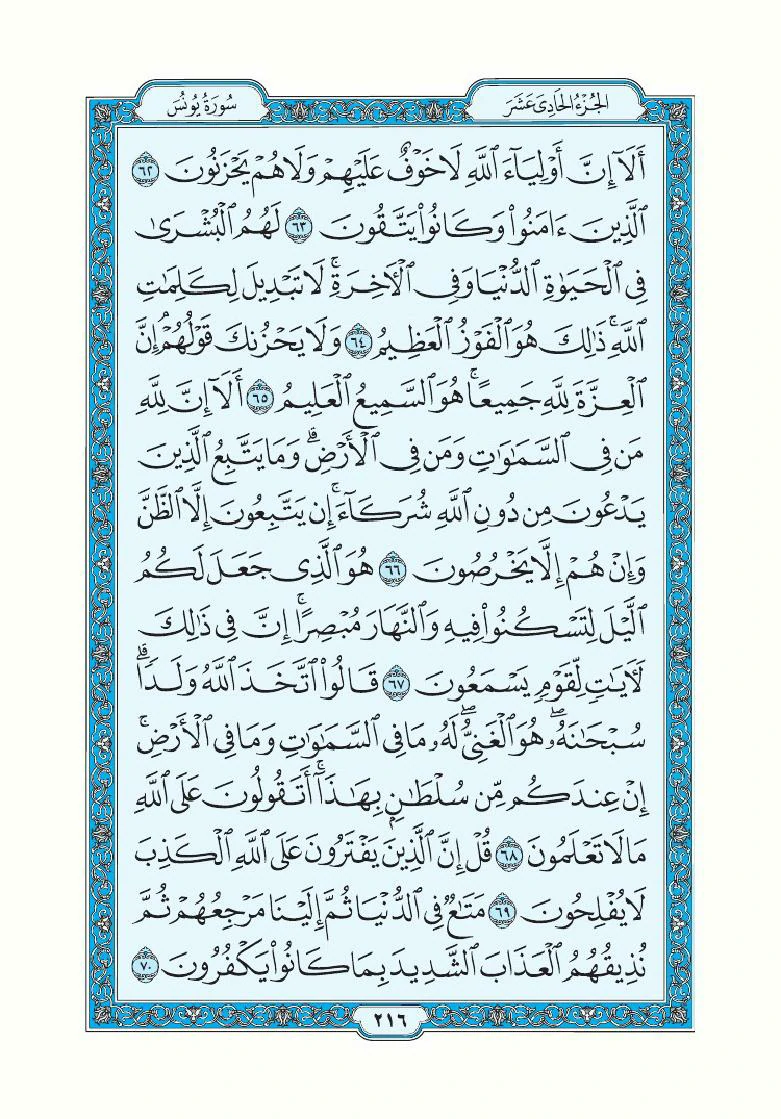 الجزء الحادي عشر
سورة يونس
أَلَآ إِنَّ أَوْلِيَآءَ ٱللَّهِ لَا خَوْفٌ عَلَيْهِمْ وَلَا هُمْ يَحْزَنُونَ ٦٢
ٱلَّذِينَ ءَامَنُوا۟ وَكَانُوا۟ يَتَّقُونَ ٦٣ لَهُمُ ٱلْبُشْرَىٰ
فِى ٱلْحَيَوٰةِ ٱلدُّنْيَا وَفِى ٱلْـَٔاخِرَةِ ۚ لَا تَبْدِيلَ لِكَلِمَٰتِ
ٱللَّهِ ۚ ذَٰلِكَ هُوَ ٱلْفَوْزُ ٱلْعَظِيمُ ٦٤ وَلَا يَحْزُنكَ قَوْلُهُمْ ۘ إِنَّ
ٱلْعِزَّةَ لِلَّهِ جَمِيعًا ۚ هُوَ ٱلسَّمِيعُ ٱلْعَلِيمُ ٦٥ أَلَآ إِنَّ لِلَّهِ
مَن فِى ٱلسَّمَٰوَٰتِ وَمَن فِى ٱلْأَرْضِ ۗ وَمَا يَتَّبِعُ ٱلَّذِينَ
يَدْعُونَ مِن دُونِ ٱللَّهِ شُرَكَآءَ ۚ إِن يَتَّبِعُونَ إِلَّا ٱلظَّنَّ
وَإِنْ هُمْ إِلَّا يَخْرُصُونَ ٦٦ هُوَ ٱلَّذِى جَعَلَ لَكُمُ
ٱلَّيْلَ لِتَسْكُنُوا۟ فِيهِ وَٱلنَّهَارَ مُبْصِرًا ۚ إِنَّ فِى ذَٰلِكَ
لَـَٔايَٰتٍ لِّقَوْمٍ يَسْمَعُونَ ٦٧ قَالُوا۟ ٱتَّخَذَ ٱللَّهُ وَلَدًا ۗ
سُبْحَٰنَهُۥ ۖ هُوَ ٱلْغَنِىُّ ۖ لَهُۥ مَا فِى ٱلسَّمَٰوَٰتِ وَمَا فِى ٱلْأَرْضِ ۚ
إِنْ عِندَكُم مِّن سُلْطَٰنٍۭ بِهَٰذَآ ۚ أَتَقُولُونَ عَلَى ٱللَّهِ
مَا لَا تَعْلَمُونَ ٦٨ قُلْ إِنَّ ٱلَّذِينَ يَفْتَرُونَ عَلَى ٱللَّهِ ٱلْكَذِبَ
لَا يُفْلِحُونَ ٦٩ مَتَٰعٌ فِى ٱلدُّنْيَا ثُمَّ إِلَيْنَا مَرْجِعُهُمْ ثُمَّ
نُذِيقُهُمُ ٱلْعَذَابَ ٱلشَّدِيدَ بِمَا كَانُوا۟ يَكْفُرُونَ ٧٠
٢١٦